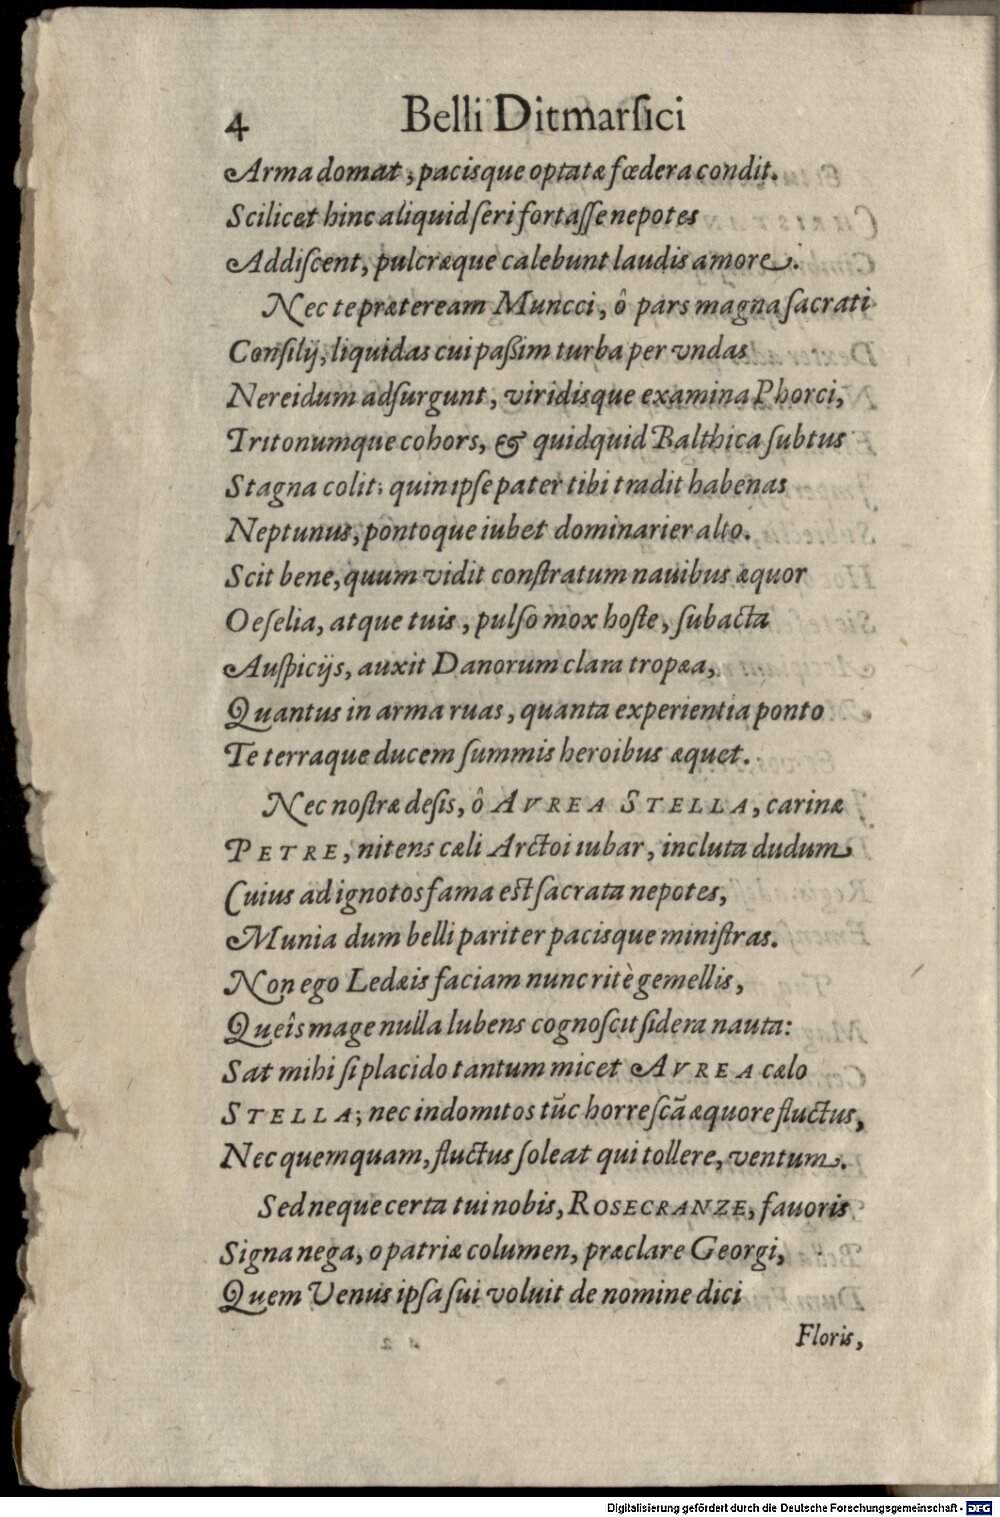 4 Belli Ditmarſici
Arma domat, pacisque optatæ fœdera condit.
Scilicet hinc aliquid ſeri fortaſſe nepotes
Addiſcent, pulcræque calebunt laudis amore.
Nec te præteream Muncci, ô pars magna ſacrati
Conſilij, liquidas cui paßim turba per vndas
Nereidum adſurgunt, viridisque examina Phorci,
Tritonumque cohors, & quidquid Balthica ſubtus
Stagna colit; quin ipſe pater tibi tradit habenas
Neptunus, pontoque iubet dominarier alto.
Scit bene, quum vidit conſtratum nauibus æquor
Oeſelia, atque tuis, pulſo mox hoſte, ſubacta
Auſpicijs, auxit Danorum clara tropæa,
Quantus in arma ruas, quanta experientia ponto
Te terraque ducem ſummis heroibus æquet.
Nec noſtræ deſis, ô AVREA STELLA, carinæ
PETRE, nitens cæli Arctoi iubar, incluta dudum
Cuius ad ignotos fama eſt ſacrata nepotes,
Munia dum belli pariter pacisque miniſtras.
Non ego Ledæis faciam nunc ritè gemellis,
Queîs mage nulla lubens cognoſcit ſidera nauta:
Sat mihi ſi placido tantum micet AVREA cælo
STELLA; nec indomitos tūc horreſcā æquore fluctus,
Nec quemquam, fluctus ſoleat qui tollere, ventum.
Sed neque certa tui nobis, ROSECRANZE, fauoris
Signa nega, o patriæ columen, præclare Georgi,
Quem Venus ipſa ſui voluit de nomine dici
Floris,
Digitalisierung gefördert durch die Deutsche Forschungsgemeinschaft - DFG